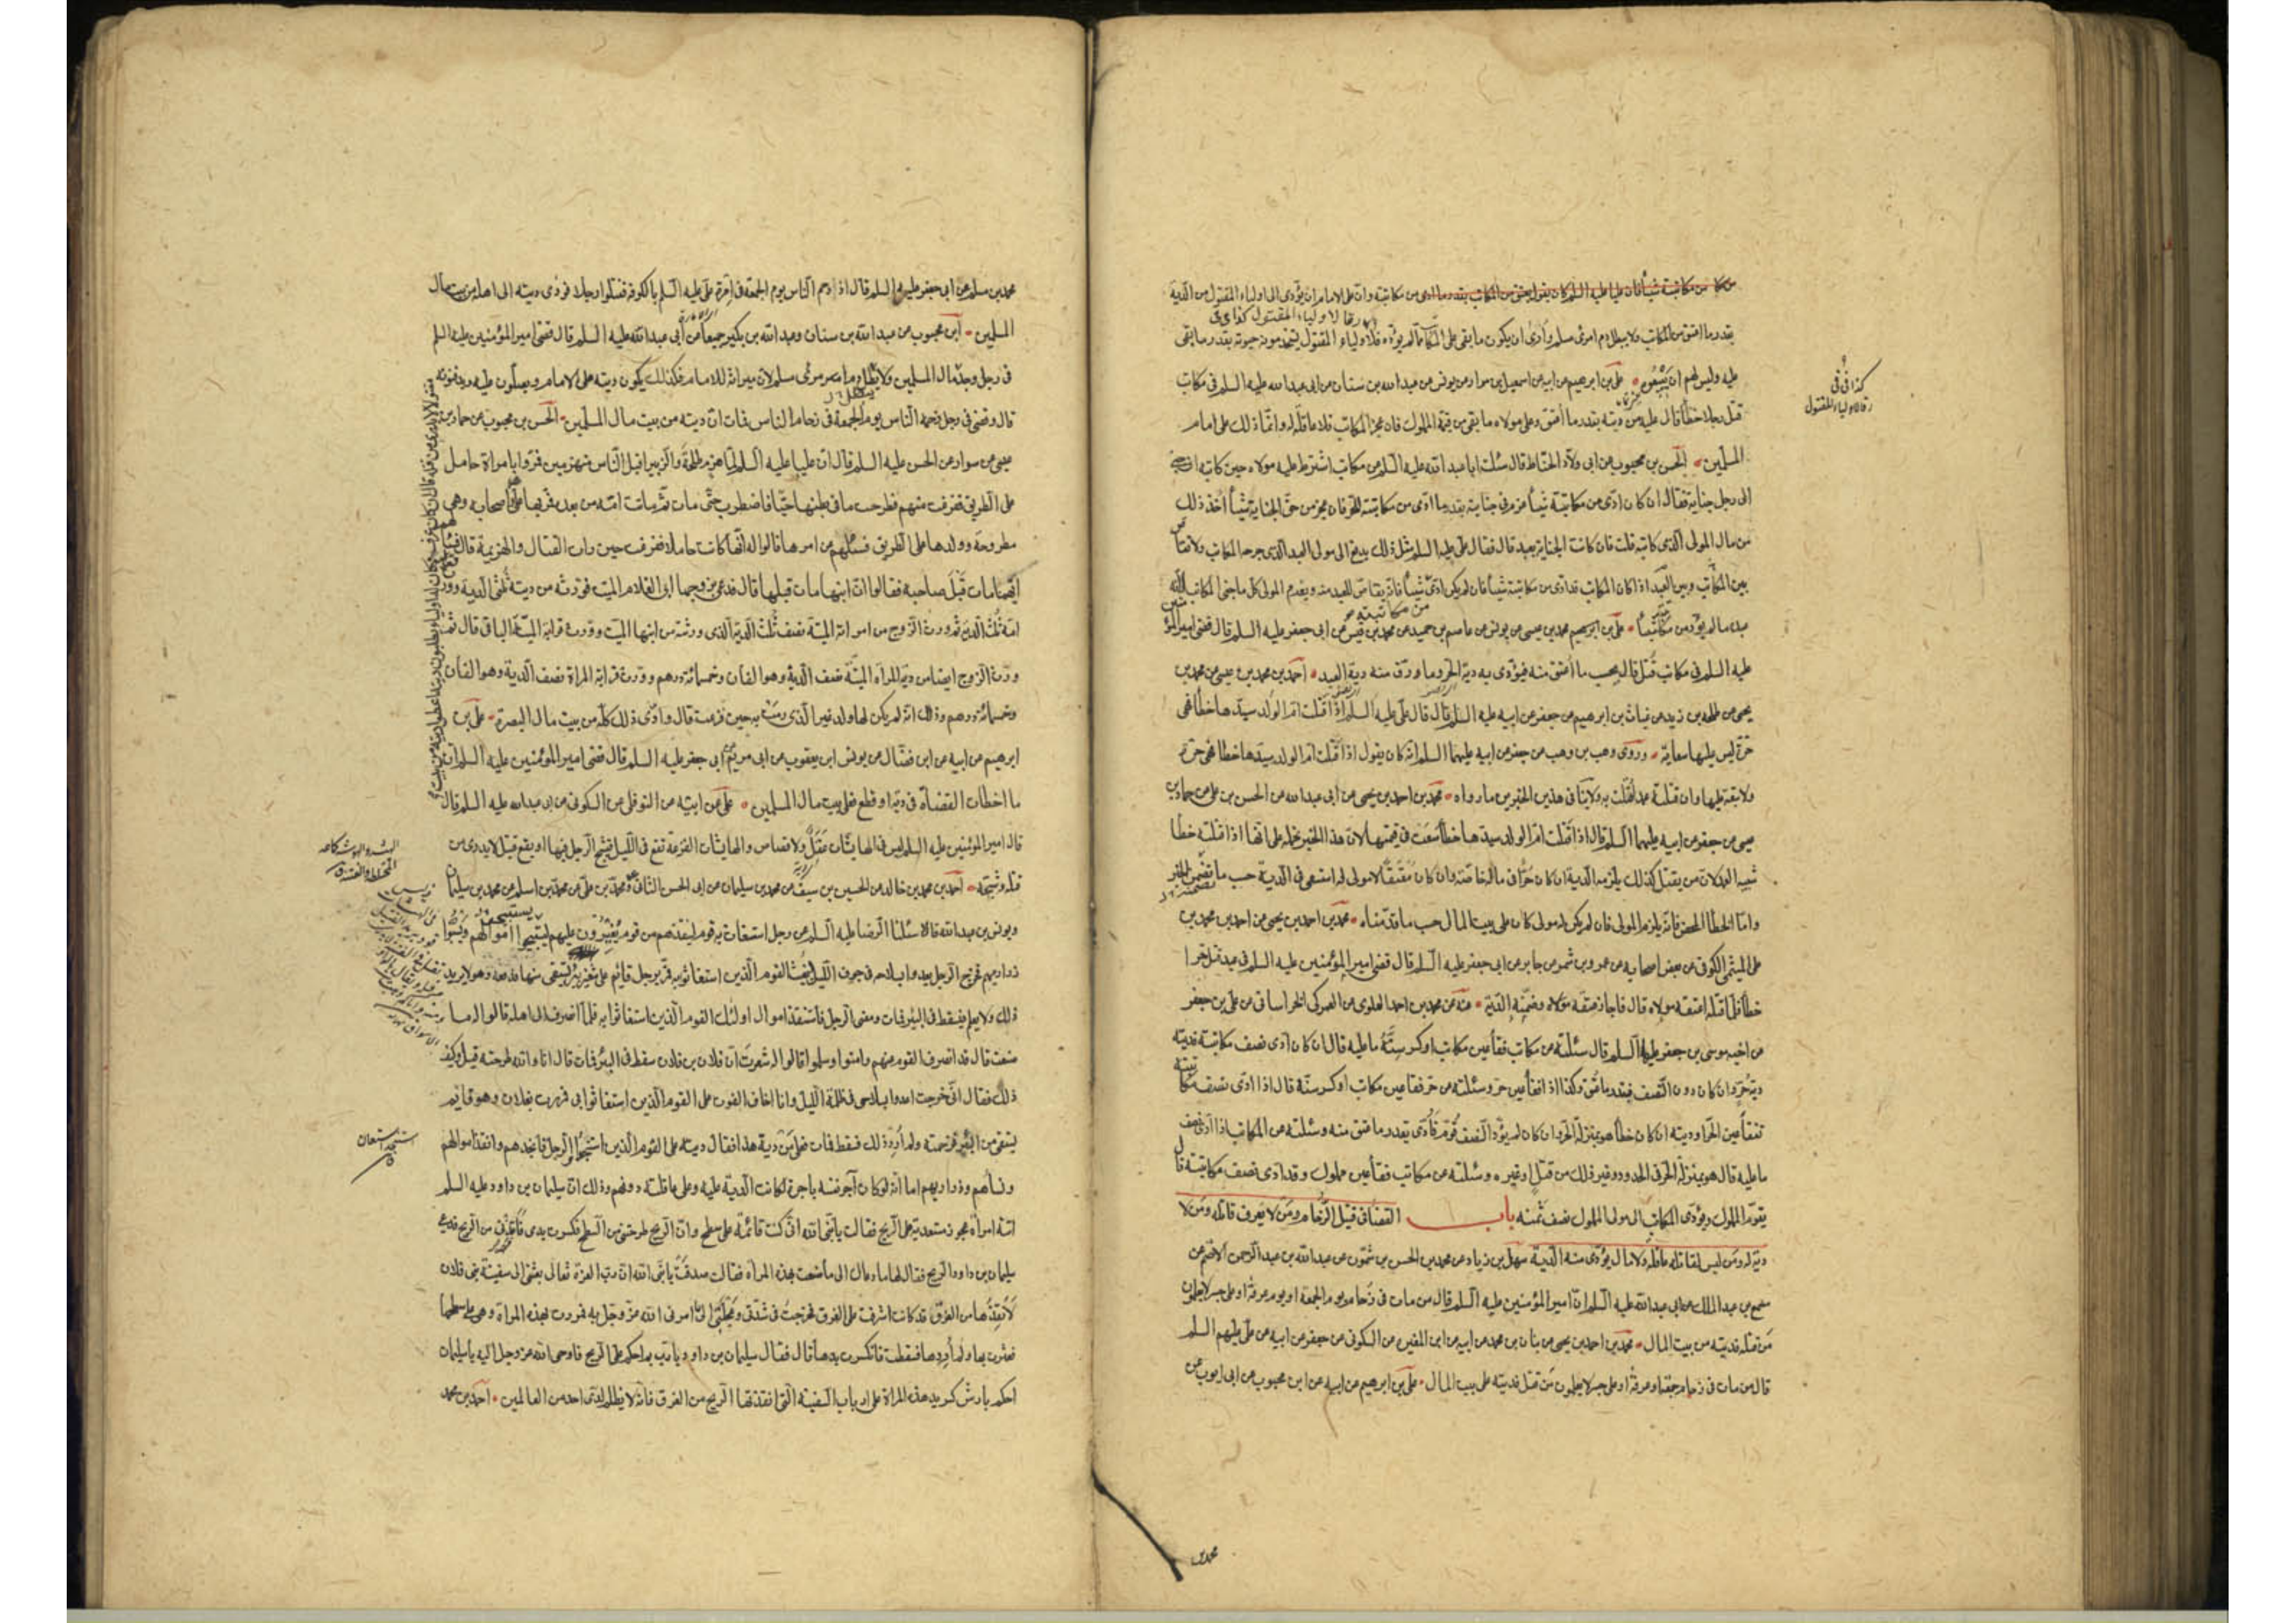 من مكاتبته شيئا فان عليا عليه السلم كان يقول يعتق من المكاتب بقدر ما ادى من مكاتبته وان على الامام ان يؤدى الى اولياء المقتول من الدية
بقدر ما اعتق من المكاتب ولا يبطل دم امرئ مسلم وارى ان يكون ما بقى على المكاتب مما لم يؤده فلاولياء المقتول يستخدمونه حيوته بقدر ما بقى
عليه وليس لهم ان يبيعوه علي بن ابرهيم عن ابيه عن اسمعيل بن مرار عن يونس عن عبد الله بن سنان عن ابى عبد الله عليه السلم فى مكاتب
قتل رجلا خطأ قال عليه من ديته بقدر ما اعتق وعلى مولاه ما بقى من قيمة المملوك فان عجز المكاتب فلا عاقلة له وانما ذلك على امام
المسلمين الحسن بن محبوب عن ابى ولاد الحناط قال سئلت ابا عبد الله عليه السلم عن مكاتب اشترط عليه مولاه حين كاتبه
الى رجل جناية فقال ان كان ادى من مكاتبته شيئا غرم فى جنايته بقدر ما ادى من مكاتبته للحر فان عجز من حق الجناية شيئا اخذ ذلك
من مال المولى الذى كاتبه قلت فان كانت الجناية بعبد قال فقال على مثل ذلك يدفع الى مولى العبد الذى جرحه المكاتب ولا تقاص
بين المكاتب وبين العبد اذا كان المكاتب قد ادى من مكاتبته شيئا فان لم يكن ادى شيئا فانه يقاص للعبد منه ويغرم المولى كل ما جنى المكاتب لانه
عبده ما لم يؤد من مكاتبته شيئا علي بن ابرهيم عن محمد بن عيسى عن يونس عن عاصم بن حميد عن محمد بن قيس عن ابى جعفر عليه السلم قال قضى امير المؤمنين
عليه السلم فى مكاتب قتل قال يحسب ما اعتق منه فيؤدى به دية الحر وما ورق منه دية العبد احمد بن محمد بن عيسى عن محمد بن
يحيى عن طلحه بن زيد عن غياث بن ابرهيم عن جعفر عن ابيه عليه السلم قال قال على عليه السلم اذا قتلت ام الولد سيدها خطأ فهى
حرة ليس عليها سعاية وروى وهب بن وهب عن جعفر عن ابيه عليهما السلم انه كان يقول اذا قتلت ام الولد سيدها خطا فهى حرة
ولا تبعة عليها وان قتلته عمدا قتلت به ولا ينافى هذين الخبرين ما رواه محمد بن احمد بن يحيى عن ابى عبد الله عن الحسن بن على عن حماد بن
عيسى عن جعفر عن ابيه عليهما السلم قال اذا قتلت ام الولد سيدها خطأ سعت فى قيمتها لان هذا الخبر نحمله على انها اذا قتلته خطأ
شبيه العمد لان من يقتل كذلك يلزمه الدية ان كان حرا فى ماله خاصة وان كان معتقا لا مولى له استسعى فى الدية حسب ما تضمنه الخبر
واما الخطأ المحض فانه يلزم المولى فان لم يكن له مولى كان على بيت المال حسب ما قدمناه محمد بن احمد بن يحيى عن احمد بن محمد بن
على الميثمى الكوفى عن بعض اصحابه عن عمرو بن شمر عن جابر عن ابى جعفر عليه السلم قال قضى امير المؤمنين عليه السلم فى عبد قتل حرا
خطأ فلما قتله اعتقه مولاه قال فاجاز عتقه وضمنه الدية عنه عن محمد بن احمد العلوى عن العمركى الخراسانى عن على بن جعفر
عن اخيه موسى بن جعفر عليه السلم قال سئلته عن مكاتب فقأ عين مكاتب او كسر سنه ما عليه قال ان كان ادى نصف مكاتبته فديته
دية حر وان كان دون النصف فبقدر ما عتق وكذا اذا فقأ عين حر وسئلته عن حر فقا عين مكاتب او كسر سنه قال اذا ادى نصف مكاتبته
تفقأ عين الحر او ديته ان كان خطأ هو بمنزلة الحر وان كان لم يؤد النصف قوم فادى بقدر ما عتق منه وسئلته عن المكاتب اذا ادى نصف
ما عليه قال هو بمنزلة الحر فى الحدود وغير ذلك من قتل او غيره وسئلته عن مكاتب فقأ عين مملوك وقد ادى نصف مكاتبته قال
يقوم المملوك ويؤدى المكاتب الى مولى المملوك نصف ثمنه باب القضا فى قتيل الزحام ومن لا يعرف قاتله ومن لا
دية له ومن ليس لقاتله عاقلة ولا مال يؤدى منه الدية سهل بن زياد عن محمد بن الحسن بن شمون عن عبد الله بن عبد الرحمن الاصم عن
مسمع بن عبد الملك عن ابى عبد الله عليه السلم ان امير المؤمنين عليه السلم قال من مات فى زحام يوم الجمعة او يوم عرفة او على جسر لا يعلمون
من قتله فديته من بيت المال محمد بن احمد بن يحيى عن بنان بن محمد عن ابيه عن ابن المغيرة عن السكونى عن جعفر عن ابيه عن على عليهم السلم
قال من مات فى زحام جمعة او عرفة او على جسر لا يعلمون من قتله فديته على بيت المال علي بن ابرهيم عن ابيه عن ابن محبوب عن ابى ايوب عن
محمد بن
محمد بن مسلم عن ابى جعفر عليه السلم قال ازدحم الناس يوم الجمعة فى امرة على عليه السلم بالكوفة فقتلوا رجلا فودى ديته الى اهله من بيت مال
المسلمين ابن محبوب عن عبد الله بن سنان وعبد الله بن بكير جميعا عن ابى عبد الله عليه السلم قال قضى امير المؤمنين عليه السلم
قال وقضى فى رجل زحمه الناس يوم الجمعة فى زحام الناس فمات ان ديته من بيت مال المسلمين الحسن بن محبوب عن حماد بن
عيسى عن سوار عن الحسن عليه السلم قال ان عليا عليه السلم لما هزم طلحة والزبير اقبل الناس منهزمين فمروا بامراة حامل
على الطريق ففزعت منهم فطرحت ما فى بطنها حيا فاضطرب حتى مات ثم ماتت امه من بعده فمر بها على واصحابه وهى
مطروحة وولدها على الطريق فسئلهم عن امرها فقالوا له انها كانت حاملا ففزعت حين رات القتال والهزيمة قال فسئلهم
ايهما مات قبل صاحبه فقالوا ان ابنها مات قبلها قال فدعى زوجها ابى الغلام الميت فورثه من ديته ثلثى الدية وورث
امه ثلث الدية ثم ورث الزوج من امراته الميتة نصف ثلث الدية الذى ورثته من ابنها الميت وورث قرابة الميتة الباقى قال ثم
ورث الزوج ايضا من دية المراة الميتة نصف الدية وهو الفان وخمسمائة درهم وورث قرابة المراة نصف الدية وهو الفان
وخمسمائة درهم وذلك انه لم يكن لها ولد غير الذى رمت به حين فزعت قال وادى ذلك كله من بيت مال البصرة علي بن
ابرهيم عن ابيه عن ابن فضال عن يونس بن يعقوب عن ابى مريم عن ابى جعفر عليه السلم قال قضى امير المؤمنين عليه السلم ان
ما اخطأت القضاة فى دم او قطع فعلى بيت مال المسلمين علي عن ابيه عن النوفلى عن السكونى عن ابى عبد الله عليه السلم قال
قال امير المؤمنين عليه السلم ليس فى الهايشات عقل ولا قصاص والهايشات الفزعة تقع فى الليل فيشج الرجل فيها او يقع قتيل لا يدرى من
قتله وشجه احمد بن محمد بن خالد عن الحسين بن سيف عن محمد بن سليمان عن ابى الحسن الثانى ومحمد بن على عن محمد بن اسلم عن محمد بن سليمان
ويونس بن عبد الله قالا سئلنا الرضا عليه السلم عن رجل استغاث به قوم لينقذهم من قوم يغيرون عليهم ليستبيحوا اموالهم ويسبوا
ذراريهم فخرج الرجل يعدو بسلاحه فى جوف الليل ليغيث القوم الذين استغاثوا به فمر برجل قائم على شفير بئر يستقى منها فدفعه وهو لا يريد
ذلك ولا يعلم فسقط فى البئر فمات ومضى الرجل فاستنقذ اموال اولئك القوم الذين استغاثوا به فلما انصرف الى اهله قالوا له ما
صنعت قال قد انصرف القوم عنهم وامنوا وسلموا قالوا له شعرت ان فلان بن فلان سقط فى البئر فمات قال انا والله طرحته قيل وكيف
ذلك فقال انى خرجت اعدو بسلاحى فى ظلمة الليل وانا اخاف الفوت على القوم الذين استغاثوا بى فمررت بفلان وهو قايم
يستقى من البئر فزحمته ولم ارد ذلك فسقط فمات فعلى من دية هذا فقال ديته على القوم الذين استنجدوا الرجل فانجدهم وانقذ اموالهم
ونساءهم وذراريهم اما انه لو كان آجر نفسه باجرة لكانت الدية عليه وعلى عاقلته دونهم وذلك ان سليمان بن داود عليه السلم
اتته امرأة عجوز مستعدية على الريح فقالت يا نبى الله انى كنت قائمة على سطح وان الريح طرحتنى من السطح فكسرت يدى فاعدنى من الريح فدعى
سليمان بن داود الريح فقال لها ما دعاك الى ما صنعت بهذه المرأة فقالت صدقت يا نبى الله ان رب العزة تعالى بعثنى الى سفينة بنى فلان
لانقذها من الغرق قد كانت اشرفت على الغرق فخرجت فى شدتى وعجلتى الى ما امرنى الله عز وجل به فمررت بهذه المراة وهى على سطحها
فعثرت بها ولم اردها فسقطت فانكسرت يدها قال فقال سليمان بن داود يا رب بما احكم على الريح فاوحى الله عز وجل اليه يا سليمان
احكم بارش كسر يد هذه المراة على ارباب السفينة التى انقذتها الريح من الغرق فانه لا يظلم لدى احد من العالمين احمد بن محمد